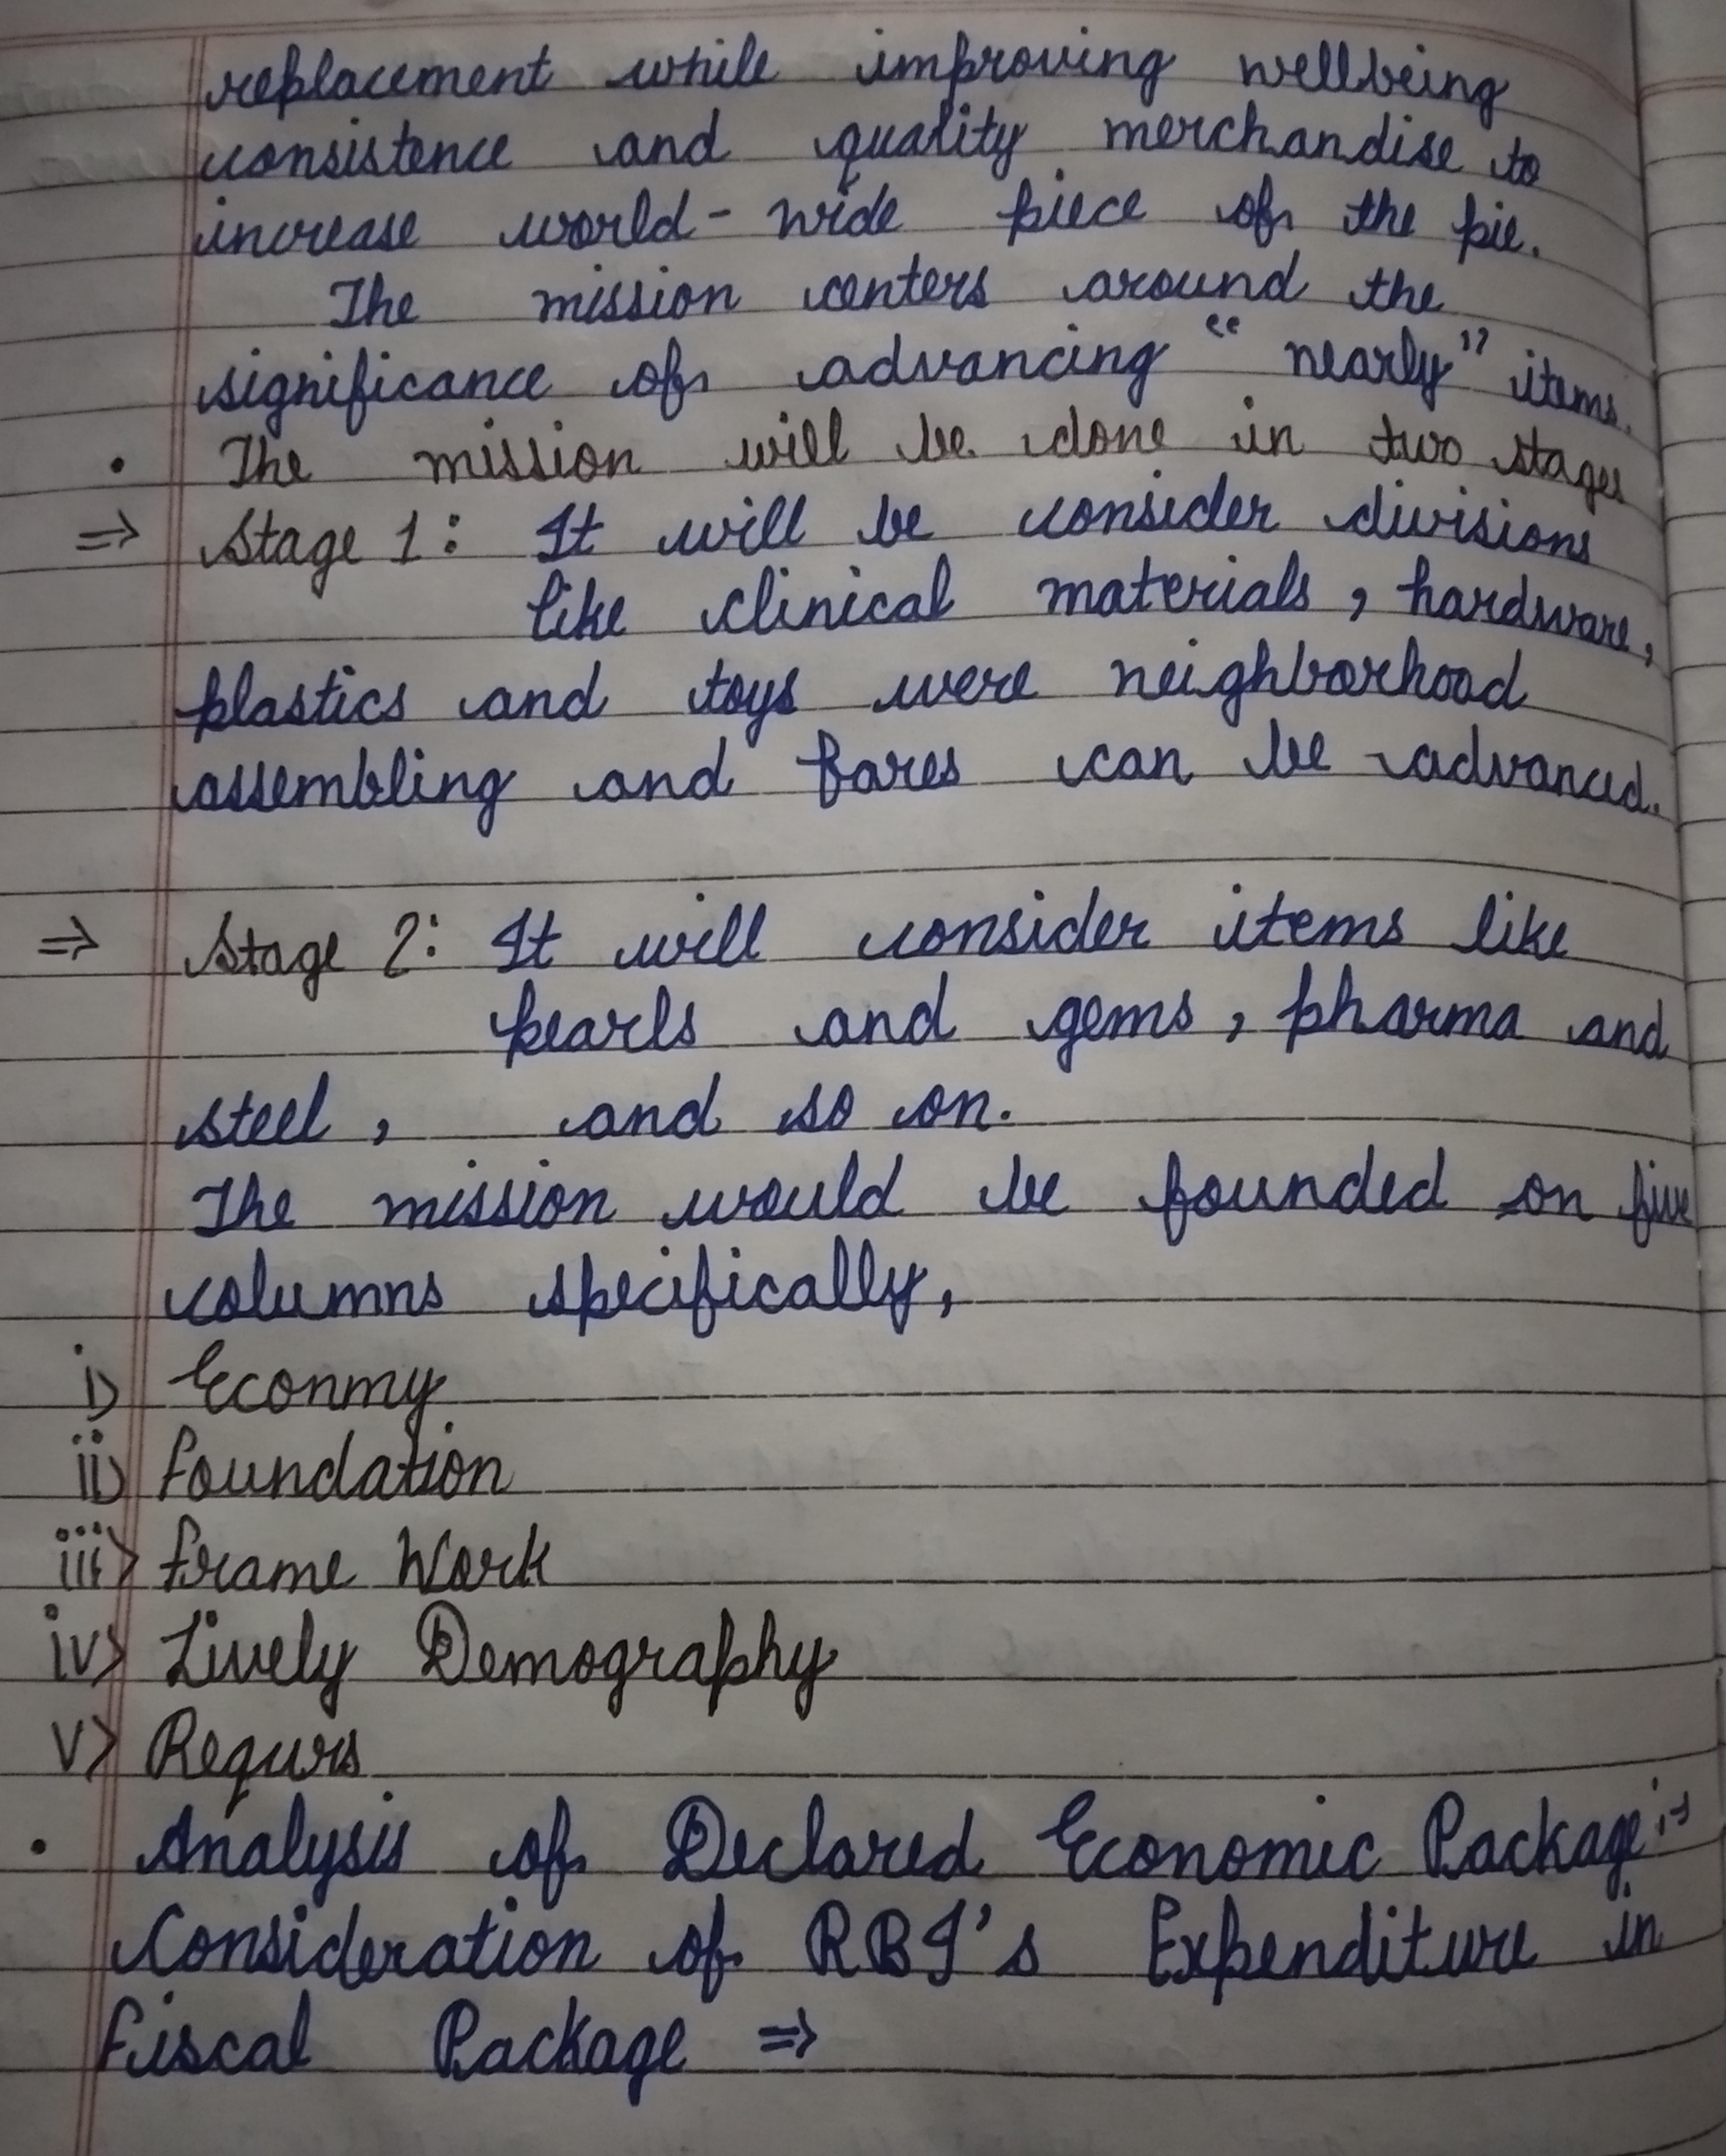 replacement while improving wellbeing
consistence and quality merchandise to
increase world-wide piece of the pie.
The mission centers around the
significance of advancing "nearly" items.
• The mission will be done in two stages
⇒ Stage 1: It will be consider divisions
like clinical materials, hardware,
plastics and toys were neighborhood
assembling and fares can be advanced.
⇒ Stage 2: It will consider items like
pearls and gems, pharma and
steel, and so on.
The mission would be founded on five
columns specifically,
i) Econmy
ii) Foundation
iii) Frame Work
iv) Lively Demography
v) Requrs
• Analysis of Declared Economic Package :-
Consideration of RBI's Expenditure in
Fiscal Package ⇒